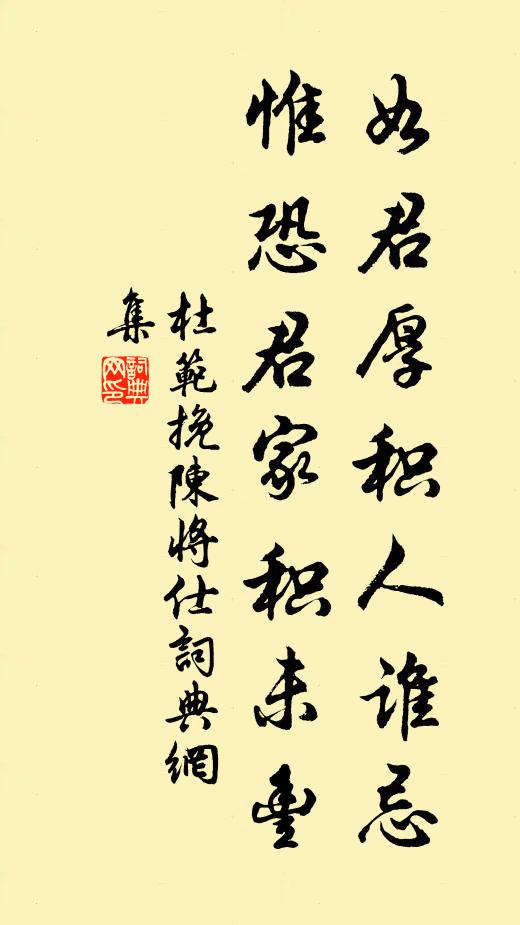 如君厚积人谁忌
惟恐君家积未豊
杜範挽陳將仕詞典網
集
詞典
网印